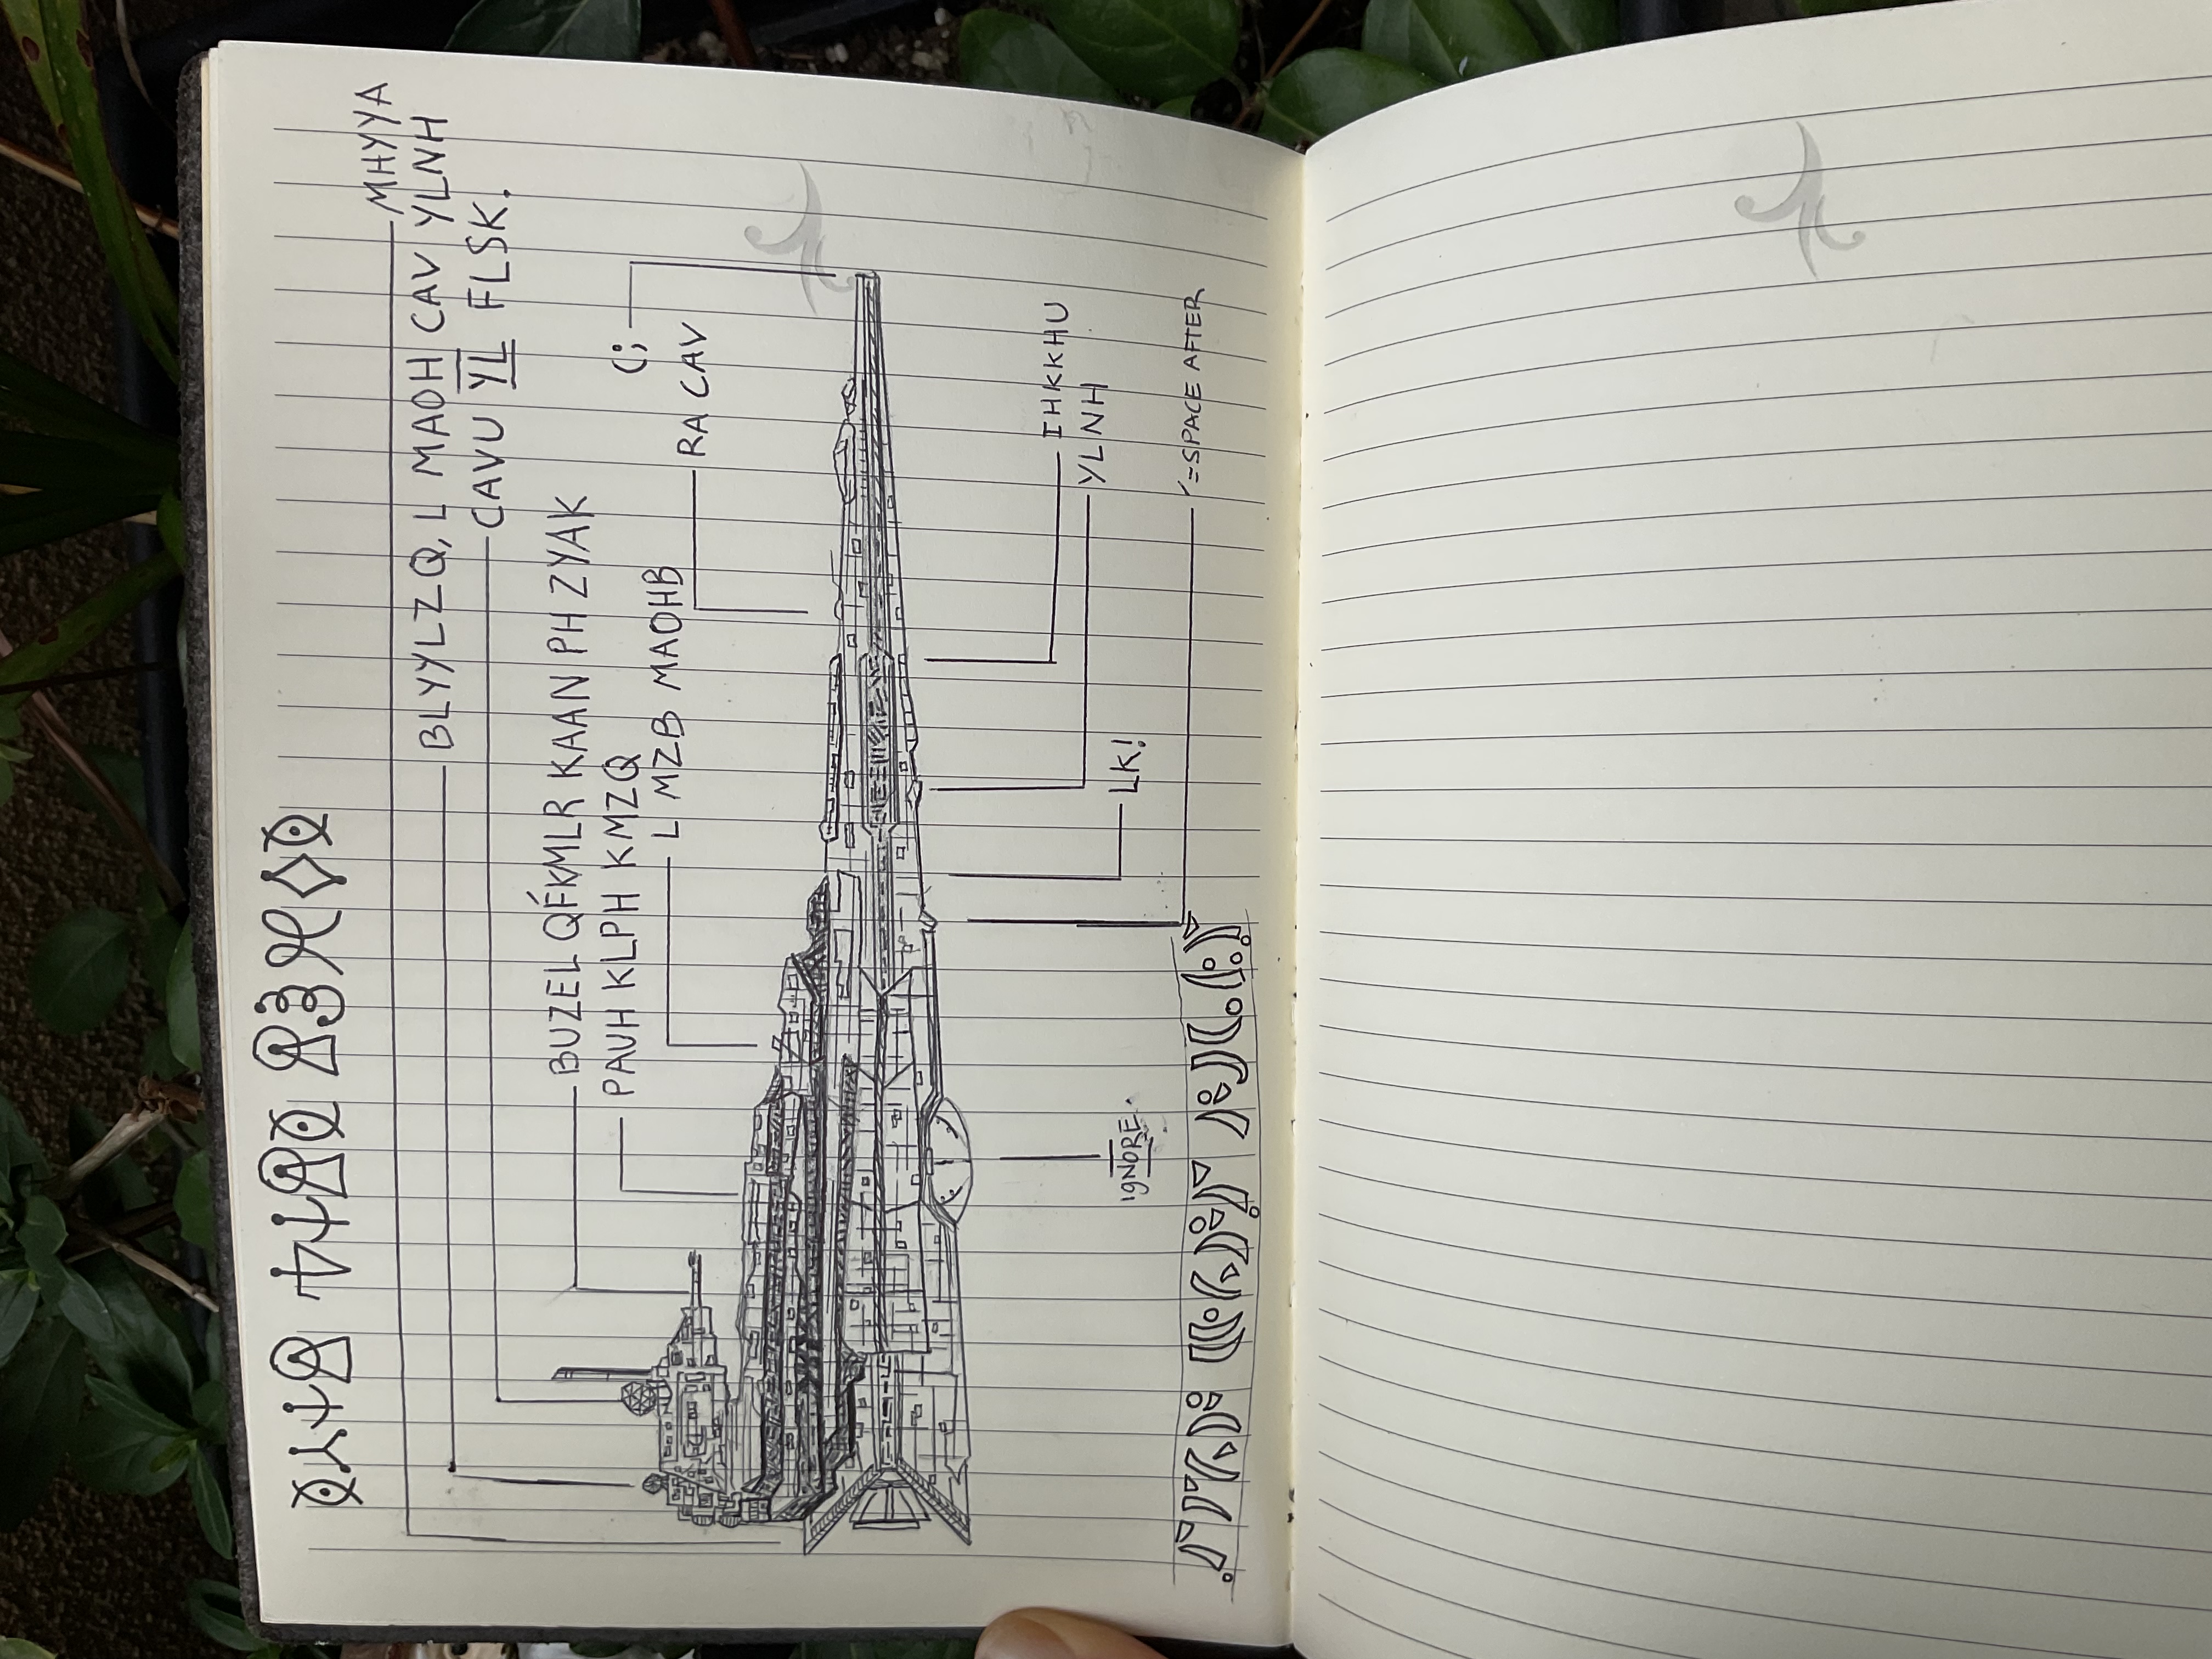 MHYYA
BLYYLZQ, L MAOH CAV YLNH
CAVU YL FLSK.
BUZEL QÉKMLR KAAN PH ZYAK
PAUH KLPH KMZQ
(;
L MZB MAOHB
RA CAV
IHKKHU
YLNH
LK!
IGNORE.
´=SPACE AFTER